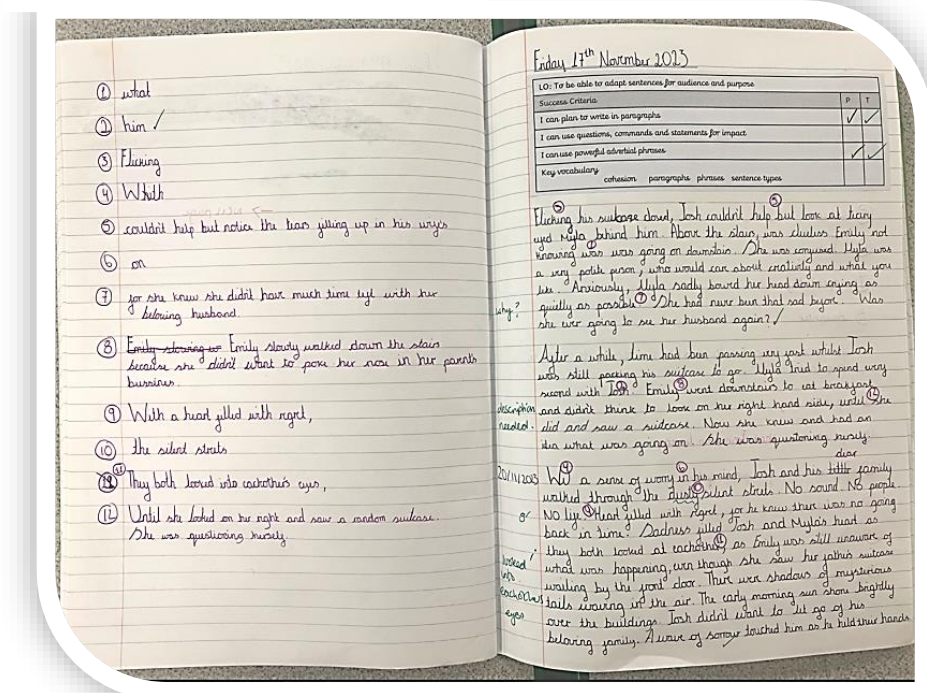 ① what
② him ✓
③ Flicking
④ Whilst
⑤ couldn't help but notice the tears filling up in his
⑥ on
⑦ for she knew she didn't have much time left with her
beloving husband.
⑧ Emily slowly walked down the stairs
because she didn't want to poke her nose in her parent's
bussines.
⑨ With a heart filled with regret,
⑩ the silent streets
⑪ They both looked into eachother's eyes,
⑫ Until she looked on her right and saw a random suitcase.
She was questioning herself.
Friday 17th November 2023
LO: To be able to adapt sentences for audience and purpose
Success Criteria P T
I can plan to write in paragraphs ✓ ✓
I can use questions, commands and statements for impact
I can use powerful adverbial phrases ✓ ✓
Key vocabulary
cohesion paragraphs phrases sentence types
Flicking his suitcase closed, Josh couldn't help but look at teary
eyed Myla behind him. Above the stairs, was clueless Emily not
knowing was was going on downstairs. She was confused. Myla was
a very polite person, who would care about creativity and what you
like. Anxiously, Myla sadly bowed her head down crying as
why? quietly as possible ⑦ She had never been that sad before. Was
she ever going to see her husband again? ✓
After a while, time had been passing very fast whilst Josh
was still packing his suitcase to go. Myla tried to spend every
second with Josh. Emily ⑧ went downstairs to eat breakfast
description and didn't think to look on her right hand side, until ⑫ she
needed. did and saw a suitcase. Now she knew and had an
idea what was going on. She was questoning herself.
dear
20/11/2023 a sense of worry in his mind, Josh and his little family
walked through the dusty silent streets. No sound. No people.
No life. Heart filled with regret, for he knew there was no going
back in time. Sadness filled Josh and Myla's head as
they both looked at eachother, as Emily was still unaware of
looked what was happening, even though she saw her father's suitcase
into waiting by the front door. There were shadows of mysterious
eachothers tails waving in the air. The early morning sun shone brightly
eyes over the buildings. Josh didn't want to let go of his
beloving family. A wave of sorrow touched him as he held their hands